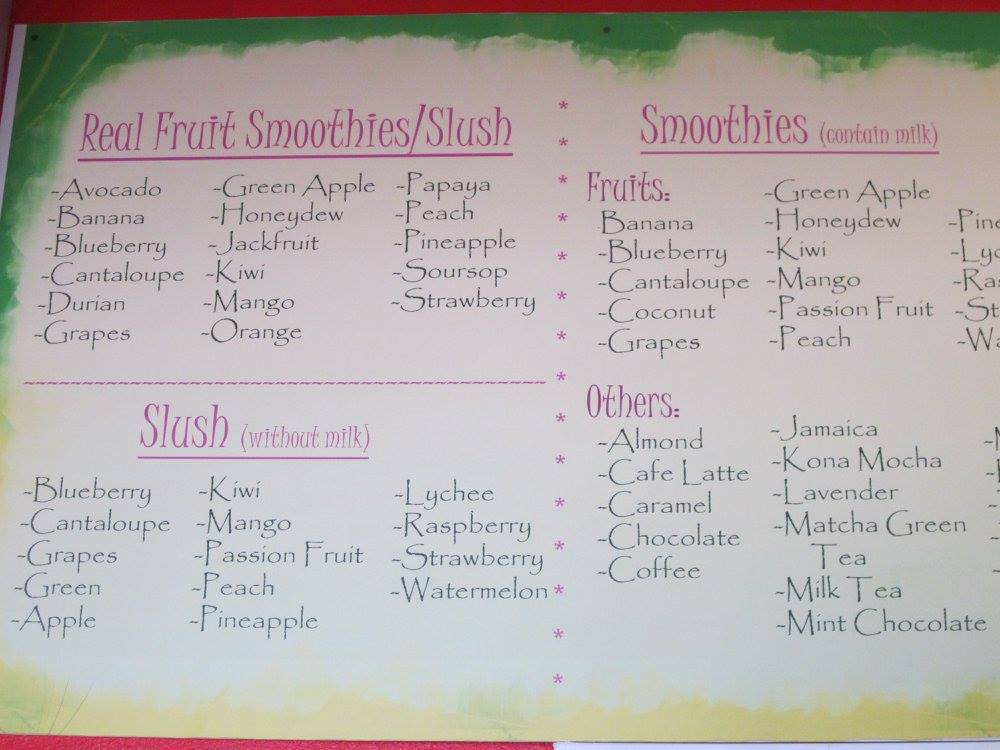 Real Fruit Smoothies/Slush
-Avocado
-Banana
-Blueberry
-Cantaloupe
-Durian
-Grapes
-Green Apple
-Honeydew
-Jackfruit
-Kiwi
-Mango
-Orange
-Papaya
-Peach
-Pineapple
-Soursop
-Strawberry
Slush (without milk)
-Blueberry
-Cantaloupe
-Grapes
-Green
-Apple
-Kiwi
-Mango
-Passion Fruit
-Peach
-Pineapple
-Lychee
-Raspberry
-Strawberry
-Watermelon
Smoothies (contain milk)
Fruits:
Banana
-Blueberry
-Cantaloupe
-Coconut
-Grapes
-Green Apple
-Honeydew
-Kiwi
-Mango
-Passion Fruit
-Peach
Others:
-Almond
-Cafe Latte
-Caramel
-Chocolate
-Coffee
-Jamaica
-Kona Mocha
-Lavender
-Matcha Green
Tea
-Milk Tea
-Mint Chocolate